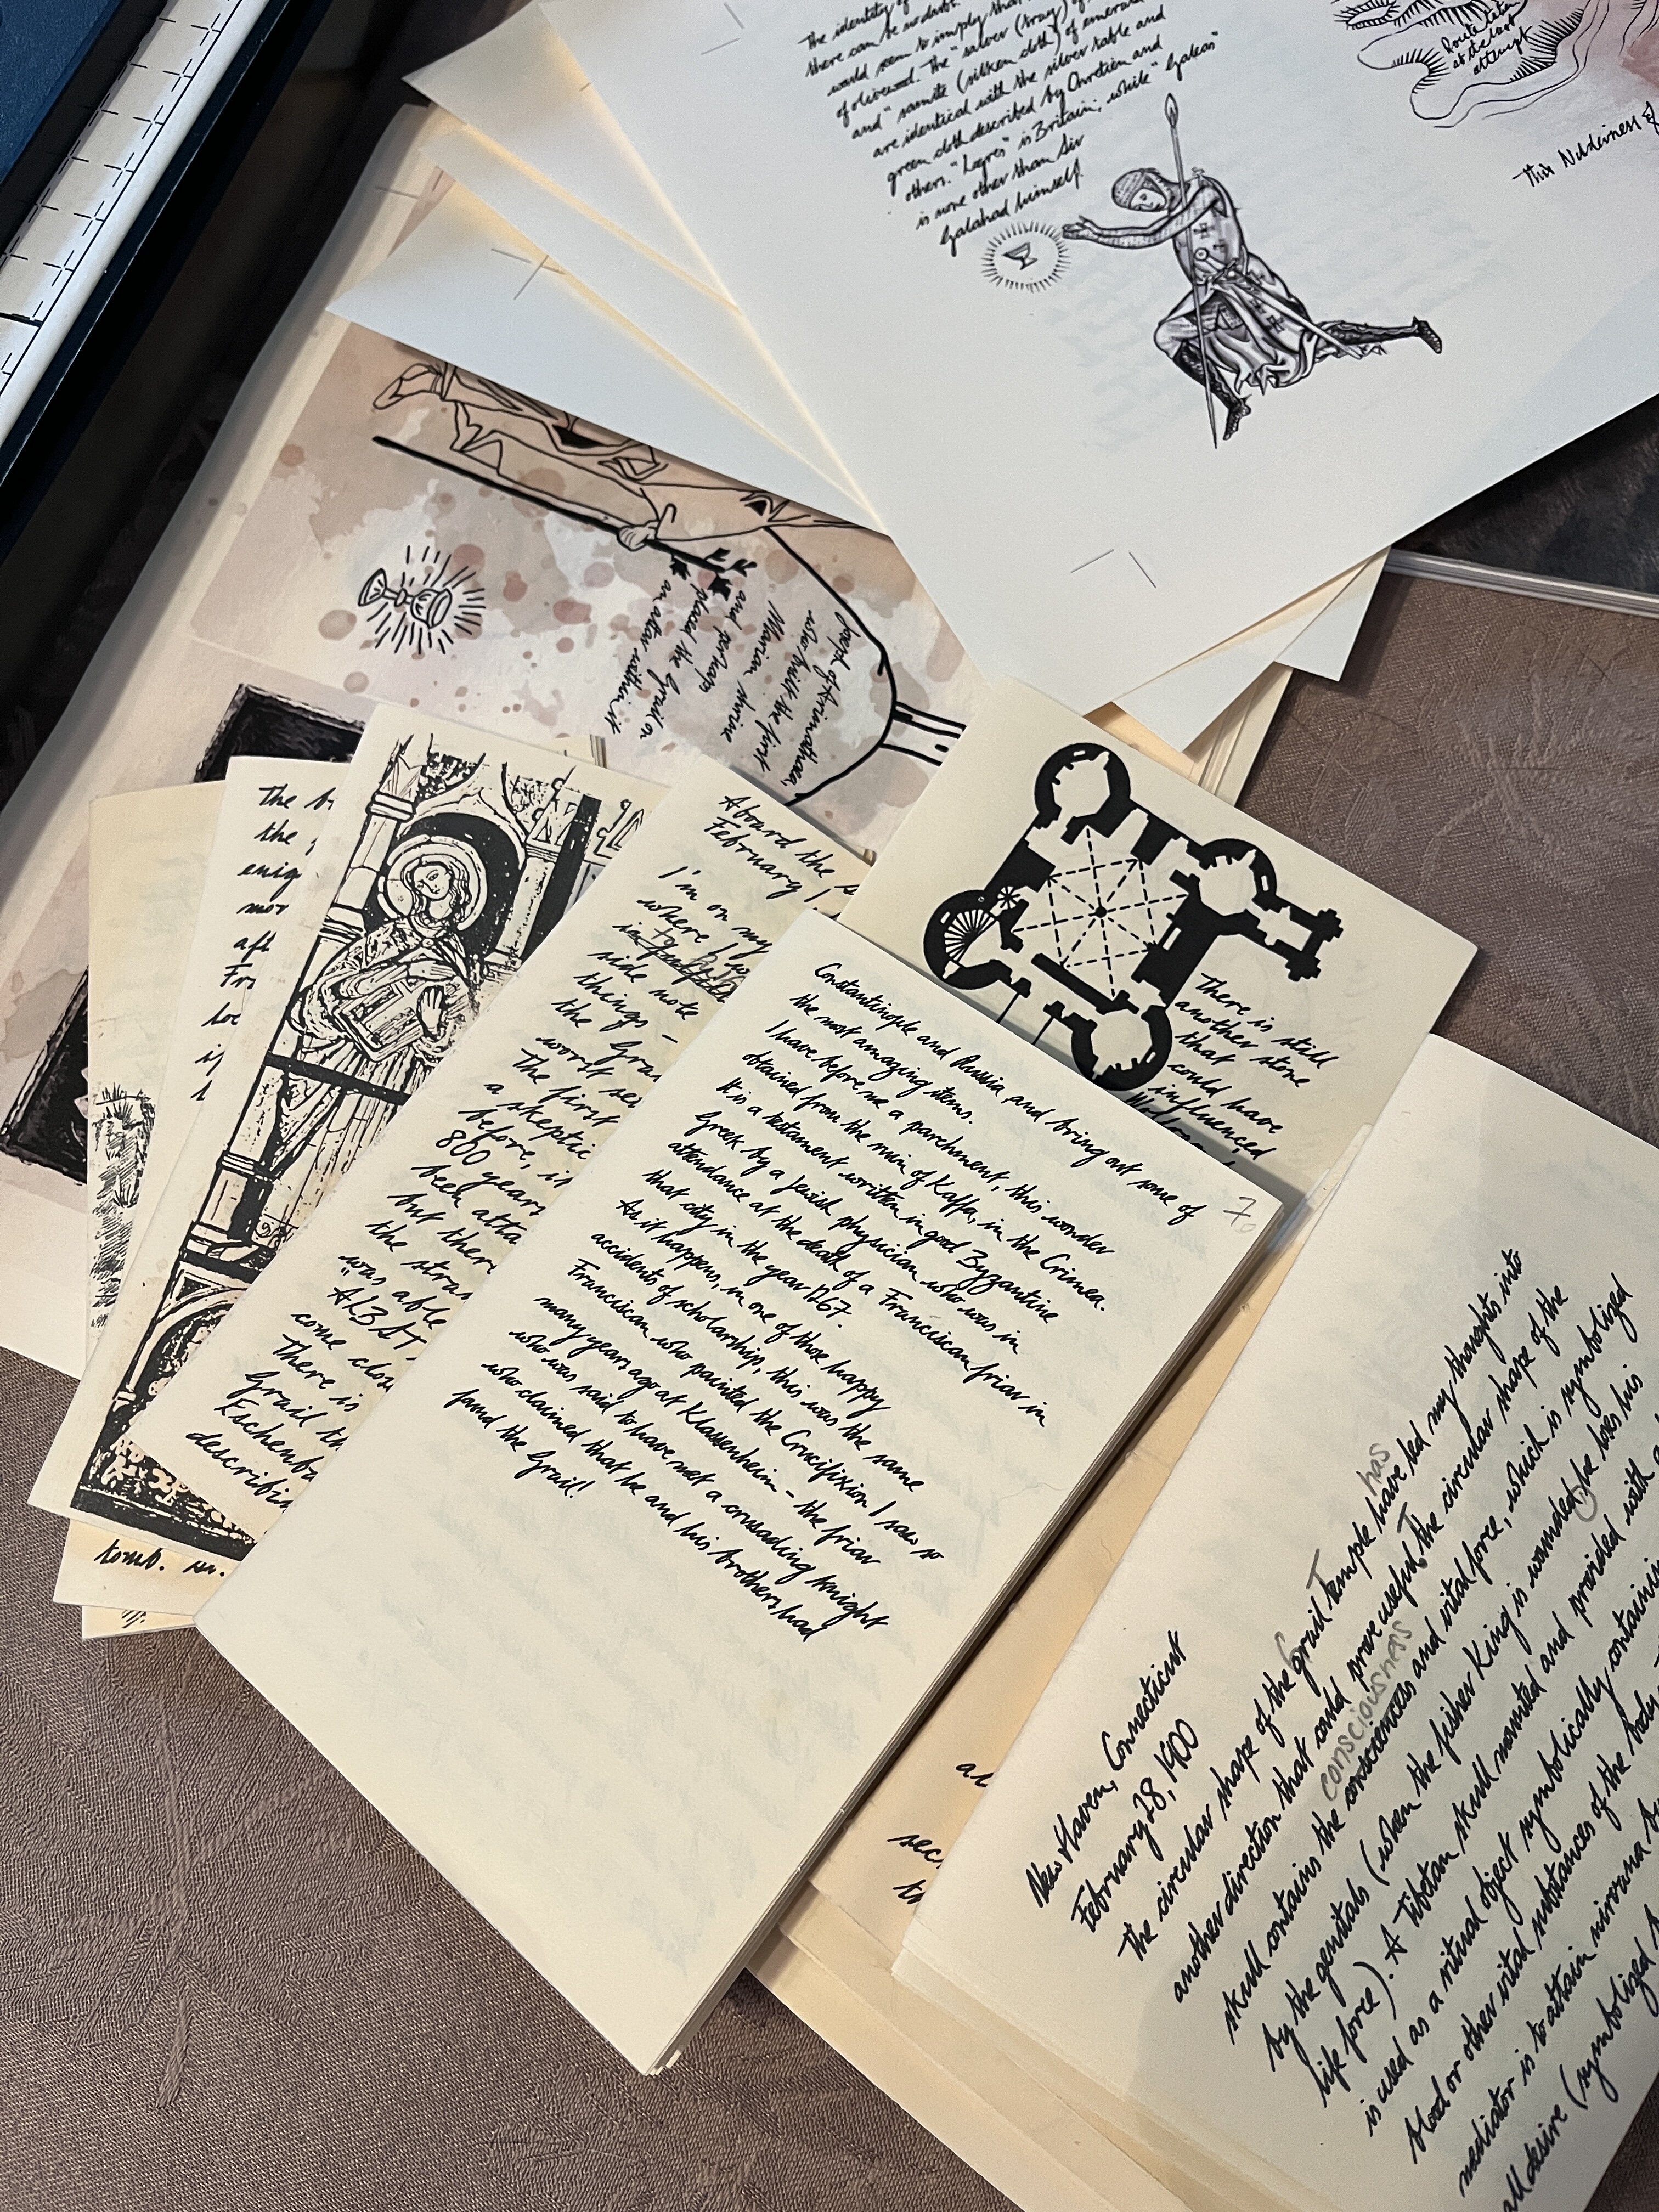 The identity of
there can be no doubt.
would seem to imply that
of olivewood. The "salver (tray) of
and "samite (silken cloth) of emerald
are identical with the silver table and
green cloth described by Chrétien and
others. "Logres" is Britain, while "Galeas"
is none other than Sir
Galahad himself.
Route taken
at the last
attempt
This Wilderness of
Joseph of Arimathaea,
who built the first
Marian shrine
and perhaps
placed the Grail on
an altar within it
The
the
enig
mor
aft
tomb.
Aboard the
February 1
I'm on my
where I
side note
things –
the Gra
worst se
The first
a skeptic
before, it
800 years
been atta
but there
the stra
was able
"ALBAT
come clos
There is
Grail th
Eschenba
describin
There is still
another stone
that could have
influenced
Constantinople and Russia, and bring out some of
the most amazing items.
I have before me a parchment, this wonder
obtained from the ruin of Kaffa, in the Crimea.
It is a testament written in good Byzantine
Greek by a Jewish physician who was in
attendance at the death of a Franciscan friar in
that city in the year 1267.
As it happens, in one of those happy
accidents of scholarship, this was the same
Franciscan who painted the Crucifixion I saw so
many years ago at Klassenheim – the friar
who was said to have met a crusading knight
who claimed that he and his brothers had
found the Grail!
7
sec
New Haven, Connecticut
February 28, 1900
The circular shape of the Grail Temple have has led my thoughts into
another direction that could prove useful. The circular shape of the
skull contains the consciousness and vital force, which is symbolized
by the genitals (when the fisher King is wounded, he loses his
life force). A Tibetan skull mounted and provided with a
is used as a ritual object symbolically containing
blood or other vital substances of the body
mediator is to attain nirvana by
all desire (symbolized